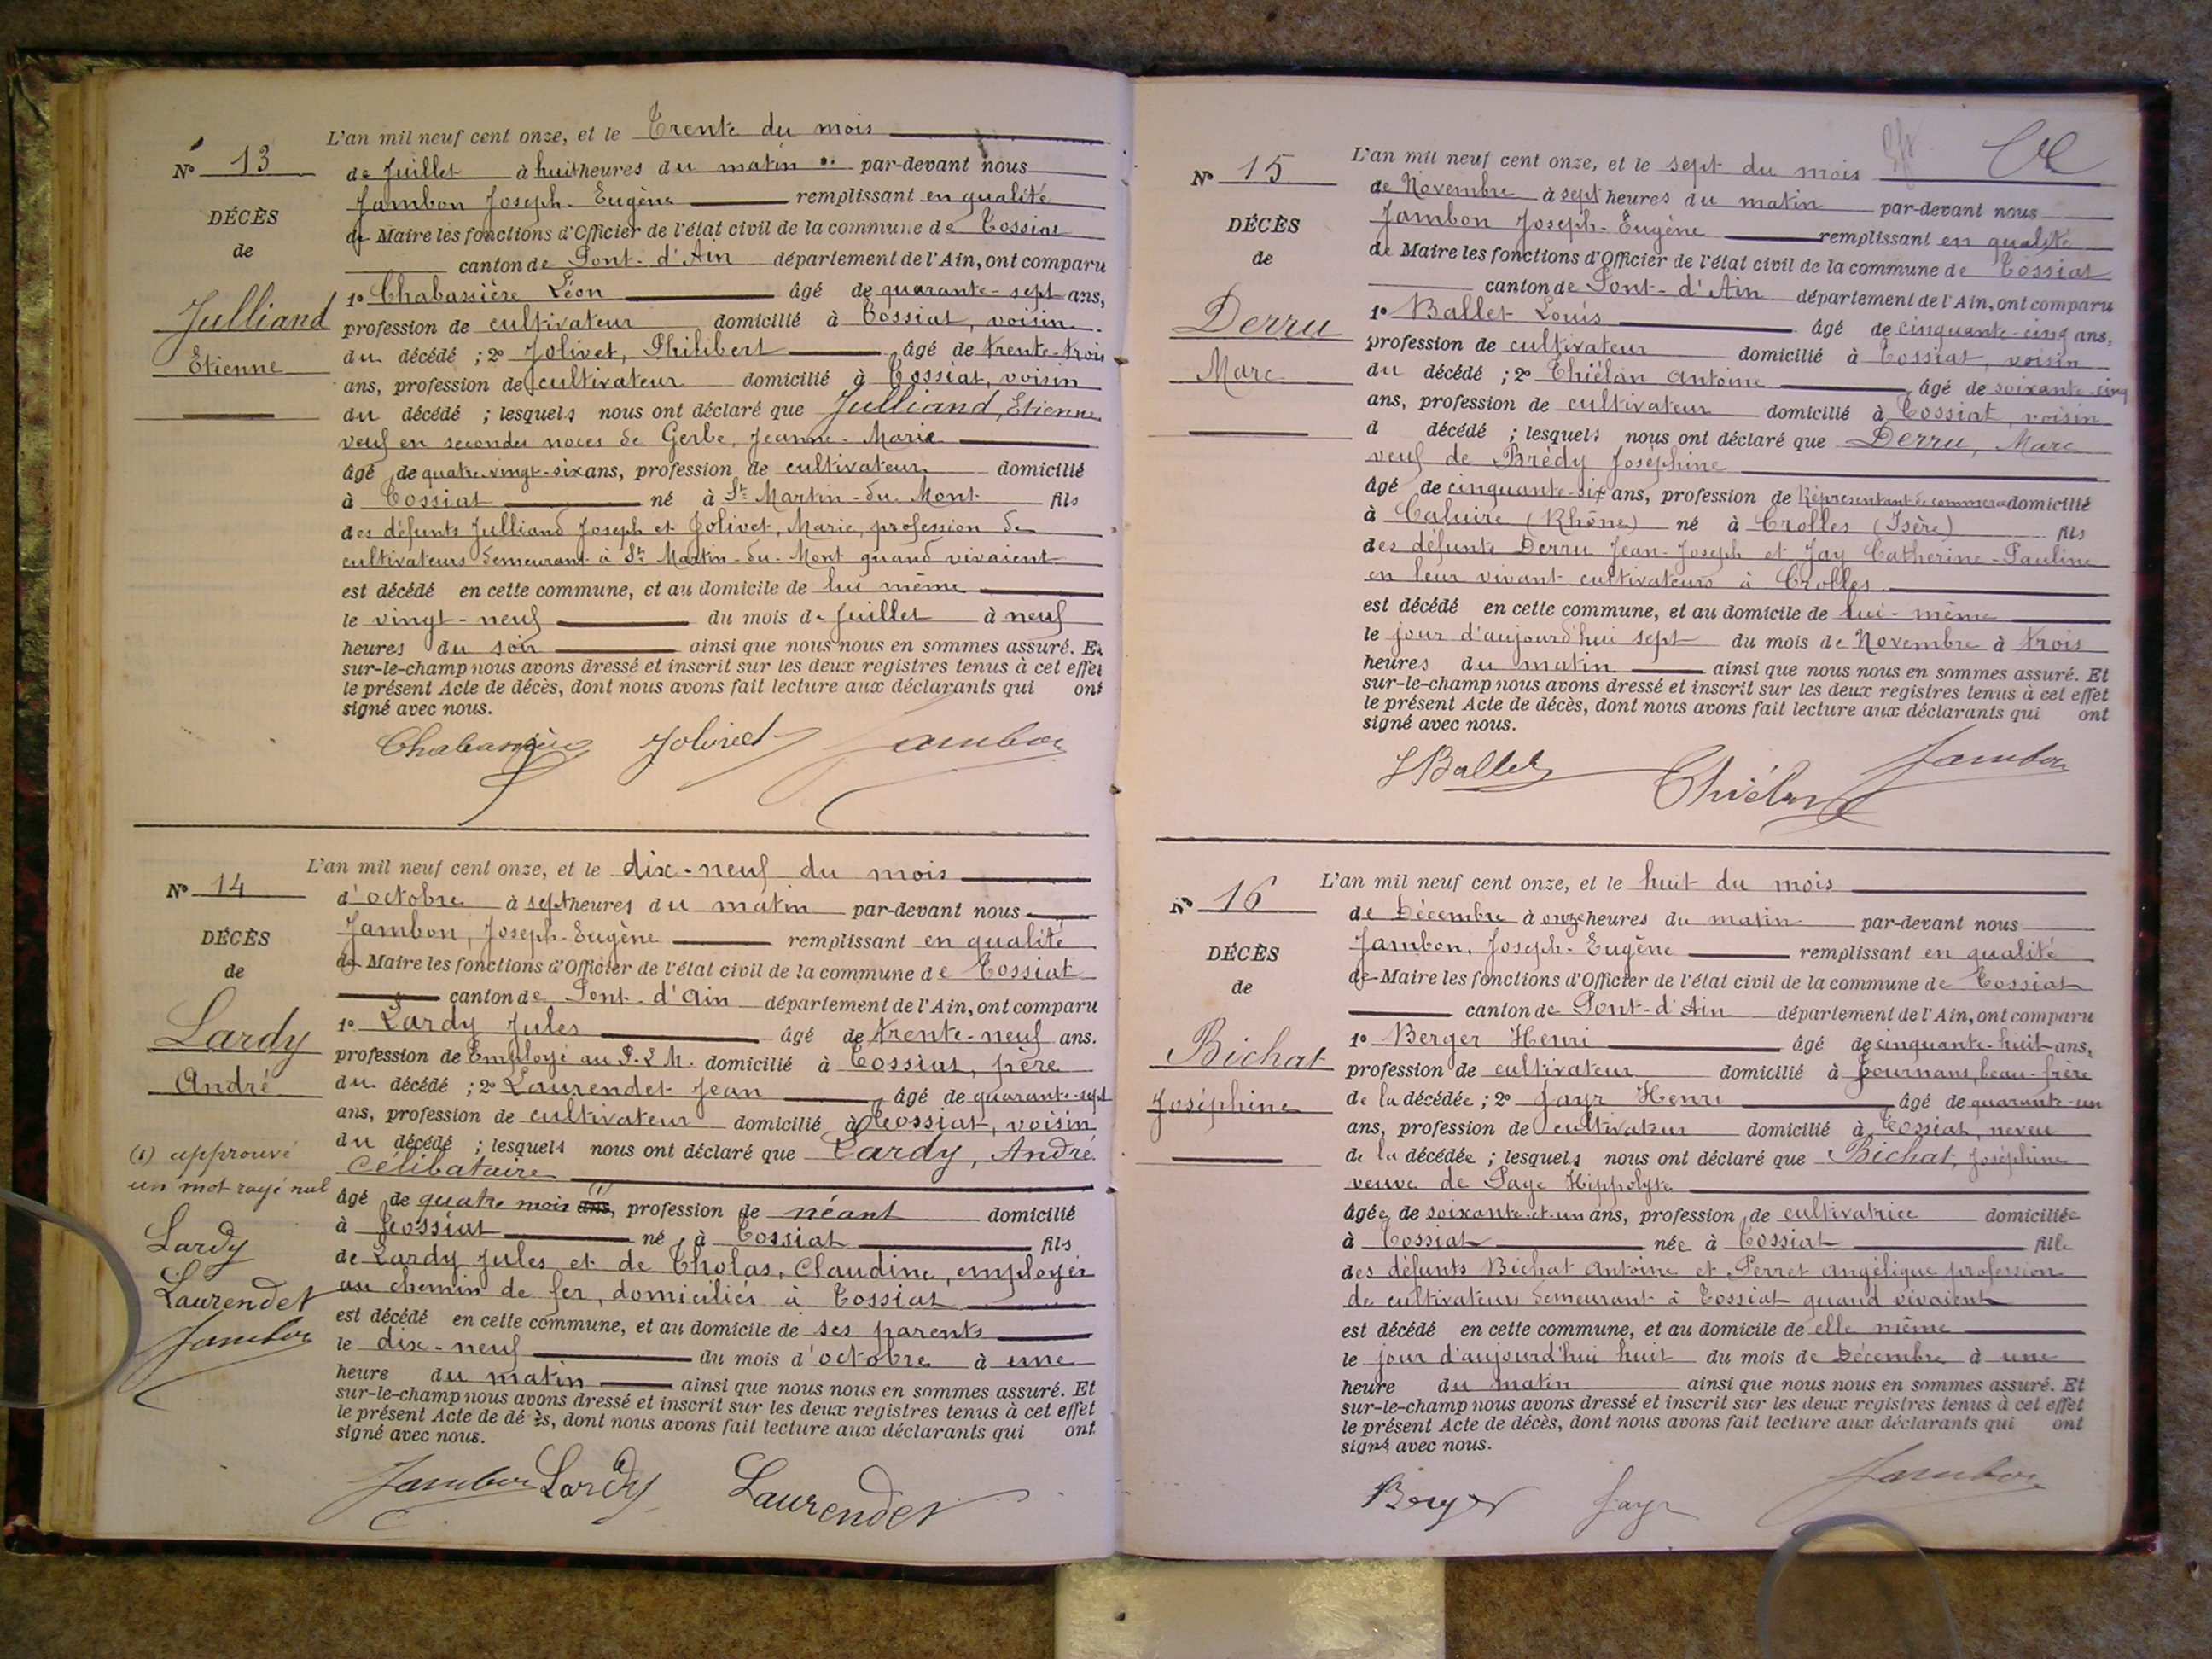 N° 13
DÉCÈS
de
Julliand
Etienne
L'an mil neuf cent onze, et le Trente du mois
de Juillet à huit heures du matin par-devant nous
Jambon Joseph-Eugène remplissant en qualité
de Maire les fonctions d'Officier de l'état civil de la commune de Tossiat
canton de Pont-d'Ain département de l'Ain, ont comparu
1° Chabassière Léon âgé de quarante-sept ans,
profession de cultivateur domicilié à Tossiat, voisin
du décédé ; 2° Jolivet, Philibert âgé de trente-trois
ans, profession de cultivateur domicilié à Tossiat, voisin
du décédé ; lesquels nous ont déclaré que Julliand, Etienne
veuf en secondes noces de Gerbe, Jeanne-Marie
âgé de quatre-vingt-six ans, profession de cultivateur domicilié
à Tossiat né à St Martin-du-Mont fils
des défunts Julliand Joseph et Jolivet, Marie, profession de
cultivateurs demeurant à St Martin-du-Mont quand vivaient
est décédé en cette commune, et au domicile de lui même
le vingt-neuf du mois de Juillet à neuf
heures du soir ainsi que nous nous en sommes assuré. Et
sur-le-champ nous avons dressé et inscrit sur les deux registres tenus à cet effet
le présent Acte de décès, dont nous avons fait lecture aux déclarants qui ont
signé avec nous.
Chabassière Jolivet Jambon
N° 14
DÉCÈS
de
Lardy
André
(1) approuvé
un mot rayé nul
Lardy
Laurendet
Jambon
L'an mil neuf cent onze, et le dix-neuf du mois
d'octobre à sept heures du matin par-devant nous
Jambon, Joseph-Eugène remplissant en qualité
de Maire les fonctions d'Officier de l'état civil de la commune de Tossiat
canton de Pont-d'Ain département de l'Ain, ont comparu
1° Lardy Jules âgé de trente-neuf ans.
profession de Employé au P.L.M. domicilié à Tossiat, père
du décédé ; 2° Laurendet Jean âgé de quarante-sept
ans, profession de cultivateur domicilié à Tossiat, voisin
du décédé ; lesquels nous ont déclaré que Lardy, André
célibataire
âgé de quatre mois (1) ans, profession de néant domicilié
à Tossiat né à Tossiat fils
de Lardy Jules et de Tholas, Claudine, employés
au chemin de fer, domiciliés à Tossiat
est décédé en cette commune, et au domicile de ses parents
le dix-neuf du mois d'octobre à une
heure du matin ainsi que nous nous en sommes assuré. Et
sur-le-champ nous avons dressé et inscrit sur les deux registres tenus à cet effet
le présent Acte de décès, dont nous avons fait lecture aux déclarants qui ont
signé avec nous.
Jambon Lardy Laurendet
N° 15
DÉCÈS
de
Derru
Marc
L'an mil neuf cent onze, et le sept du mois
de Novembre à sept heures du matin par-devant nous
Jambon Joseph-Eugène remplissant en qualité
de Maire les fonctions d'Officier de l'état civil de la commune de Tossiat
canton de Pont-d'Ain département de l'Ain, ont comparu
1° Ballet Louis âgé de cinquante-cinq ans,
profession de cultivateur domicilié à Tossiat, voisin
du décédé ; 2° Thiélan Antoine âgé de soixante-cinq
ans, profession de cultivateur domicilié à Tossiat, voisin
d décédé ; lesquels nous ont déclaré que Derru, Marc
veuf de Brédy Joséphine
âgé de cinquante-six ans, profession de Représentant de commerce domicilié
à Caluire (Rhône) né à Crolles (Isère) fils
des défunts Derru Jean-Joseph et Jay Catherine-Pauline
en leur vivant cultivateurs à Crolles
est décédé en cette commune, et au domicile de lui-même
le jour d'aujourd'hui sept du mois de Novembre à trois
heures du matin ainsi que nous nous en sommes assuré. Et
sur-le-champ nous avons dressé et inscrit sur les deux registres tenus à cet effet
le présent Acte de décès, dont nous avons fait lecture aux déclarants qui ont
signé avec nous.
Ballet Thiélan Jambon
N° 16
DÉCÈS
de
Bichat
Joséphine
L'an mil neuf cent onze, et le huit du mois
de Décembre à onze heures du matin par-devant nous
Jambon, Joseph-Eugène remplissant en qualité
de Maire les fonctions d'Officier de l'état civil de la commune de Tossiat
canton de Pont-d'Ain département de l'Ain, ont comparu
1° Berger Henri âgé de cinquante-huit ans,
profession de cultivateur domicilié à Journans, beau-frère
de la décédée ; 2° Jayr Henri âgé de quarante-un
ans, profession de cultivateur domicilié à Tossiat, neveu
de la décédée ; lesquels nous ont déclaré que Bichat, Joséphine
veuve de Page Hippolyte
âgée de soixante-et-un ans, profession de cultivatrice domiciliée
à Tossiat née à Tossiat fille
des défunts Bichat Antoine et Perret Angélique profession
de cultivateurs demeurant à Tossiat quand vivaient
est décédé en cette commune, et au domicile de elle même
le jour d'aujourd'hui huit du mois de Décembre à une
heure du matin ainsi que nous nous en sommes assuré. Et
sur-le-champ nous avons dressé et inscrit sur les deux registres tenus à cet effet
le présent Acte de décès, dont nous avons fait lecture aux déclarants qui ont
signé avec nous.
Berger Jayr Jambon